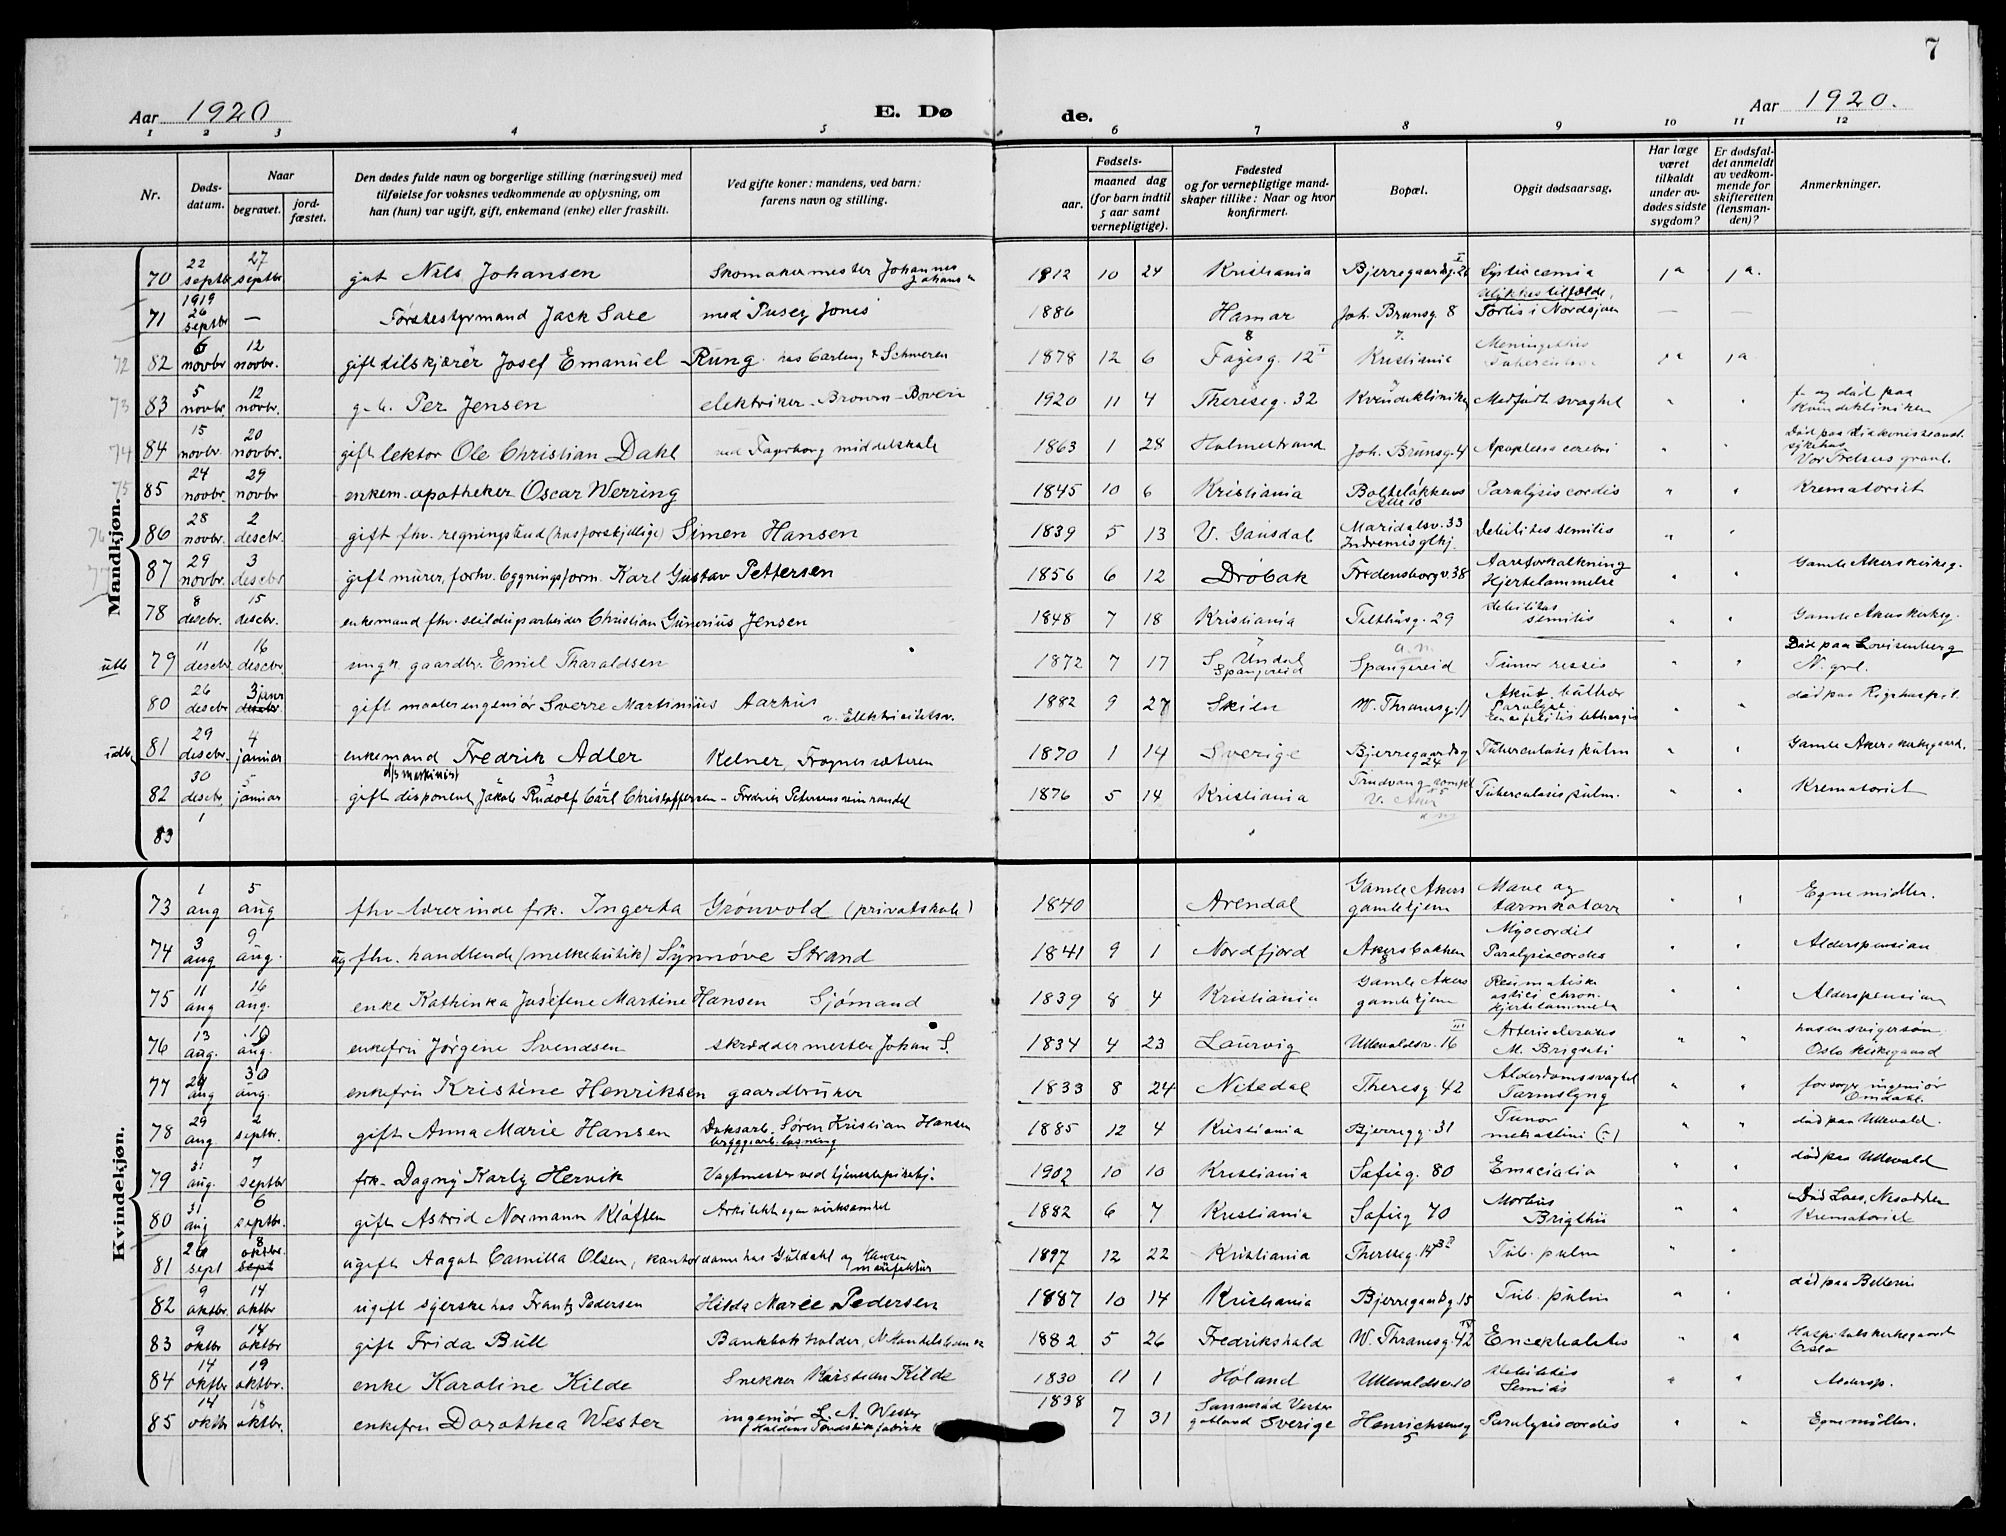 7
Aar 1920
E. Dø
de.
Aar 1920.
1 2 3 4 5 6 7 8 9 10 11 12
Nr.
Døds-
datum.
Naar
begravet.
jord-
fæstet.
Den dødes fulde navn og borgerlige stilling (næringsvei) med
tilføielse for voksnes vedkommende av oplysning, om
han (hun) var ugift, gift, enkemand (enke) eller fraskilt.
Ved gifte koner: mandens, ved barn:
farens navn og stilling.
Fødsels-
aar.
maaned dag
(for barn indtil
5 aar samt
vernepligtige).
Fødested
og for vernepligtige mand-
skaper tillike: Naar og hvor
konfirmert.
Bopæl.
Opgit dødsaarsag.
Har læge
været
tilkaldt
under av-
dødes sidste
sygdom?
Er dødsfal-
det anmeldt
av vedkom-
mende for
skifteretten
(lensman-
den)?
Anmerkninger.
Mandkjøn.
70 22 septbr 27 septbr gut Nils Johansen Skomakermester Johannes Johansen 1912 10 24 Kristiania Bjerregaardsg. 26 I ja ja.
71 1919 26 septbr — Førstestyrmand Jack Saxe med Pusey Jones 1886 Hamar Joh. Brunsg 8 Ulykkestilfælde, Forlis i Nordsjøen — —
72 82 6 novbr 12 novbr. gift tilskjærer Josef Emanuel Rung. 1878 12 6 Fagesg. 12 I Kristiania ja ja
73 83 5 novbr. 12 novbr. g. b. Per Jensen elektriker Brown-Boveri 1920 11 4 Thereseg. 32 Kvindekliniken Medfødt svaghet " " f. og død paa Kvindekliniken
74 84 15 novbr. 20 novbr. gift lektor Ole Christian Dahl ved Fagerborg middelskole 1863 1 28 Holmestrand Joh. Brunsg. 4 Apoplexia cerebri " " Død paa Diakonisseanst. sykehus Vor Frelsers gravl.
75 85 24 novbr. 29 novbr enkem. apotheker Oscar Werring 1845 10 6 Kristiania Bolteløkkens Allé 10 Paralysis cordis " " Krematoriet
76 86 28 novbr. 2 desebr. gift fhv. regningsbud (hos forskjellige) Simen Hansen 1839 5 13 V. Gausdal Maridalsv. 33 Indremisglhj. Debilitas senilis " "
77 87 29 novbr. 3 desebr gift murer, forhv. bygningsform. Karl Gustav Pettersen 1856 6 12 Drøbak Fredensborgv. 38 Aareforkalkning Hjertelammelse " " Gamle Akers kirkeg.
78 8 desebr. 15 desebr. enkemand fhv. seildugsarbeider Christian Gunerius Jensen 1848 7 18 Kristiania Tulthusg. 29 debilitas senilis " " Gamle Akers kirkeg.
utb 79 11 desebr. 16 desebr. ungk. gaardbr. Emil Tharaldsen 1872 7 17 S. Undal Spangereid a. m. Spangereid " " Død paa Lovisenberg N. gvl.
80 26 desebr 3 janr desebr. gift maaleringeniør Sverre Martinius Aarhus v. Elektricitetsv. 1882 9 27 Skien W. Thranesg. Paralyse Encephalitis lethargis " " død paa Rigshospit.
udb. 81 29 desebr. 4 januar enkemand Fredrik Adler Kelner, Frognersæteren 1870 1 14 Sverige Bjerregaardsg 24 Tuberculosis pulm " " Gamle Akers kirkegaard.
82 30 desebr 5 januar gift disponent Jakob Rudolf Carl Christoffersen – Fredrik Petersens vinhandel 1876 5 14 Kristiania V. Aker Tuberculosis pulm. " " Krematoriet
83 1
Kvindekjøn.
73 1 aug 5 aug fhv. lærerinde frk. Ingerta Grønvold (privatskole) 1840 Arendal Gamle Akers gamlehjem Mave og tarmkatarr " " Egne midler.
74 3 aug 9 aug. ug fhv. handlende (melkebutik) Synnøve Strand 1841 9 1 Nordfjord Akersbakken Myocardit Paralysis cordis " " Alderspension
75 11 aug 16 aug. enke Kathinka Josefine Martine Hansen Sjømand 1839 8 4 Kristiania Gamle Akers gamlehjem chron. Hjertelammelse " " Alderspension
76 13 aug. aug. enkefru Jørgine Svendsen skræddermester Johan S. 1834 4 23 Laurvig Ullevaldsv. 16 III M. Brigthi " " hos svigersøn Oslo kirkegaard
77 24 aug 30 aug. enkefru Kristine Henriksen gaardbruker 1833 8 24 Nitedal Theresg. 42 Alderdomssvaghet " " forsørger ingeniør
78 29 aug. 2 septbr. gift Anna Marie Hansen Doksarb. Søren Kristian Hansen 1885 12 4 Kristiania Bjerregg. 31 Tumor " " død paa Ullevold.
79 31 aug. 7 septbr frk. Dagny Karly Hervik Vagtmester ved tjenestepikehj. 1902 10 10 Kristiania Sofieg. 80 Emaciatio " " død paa Ullevold
80 31 aug 6 septbr. gift Astrid Normann Kløften Arkitekt egen virksomhet 1882 6 7 Kristiania Sofieg 70 Morbus Brigthii " " Død Nesodden Krematoriet
81 26 sept 8 oktbr. sept ugift Aagot Camilla Olsen, kontordame hos Guldahl og Hansen manufaktur 1897 12 22 Kristiania Thereseg. Tub. pulm " "
82 9 oktbr. 14 oktbr ugift syerske hos Frantz Pedersen Hilda Marie Pedersen 1887 10 14 Kristiania Bjerregaardsg. 15 Tub. pulm " " død paa
83 9 oktbr 14 oktbr gift Frida Bull Bankbokholder, N. Handelsbank 1882 5 26 Fredrikshald W. Thranesg. 42 IV Encephalitis " " Hospitalskirkegaard Oslo
84 14 oktbr 19 oktbr. enke Karoline Kilde Snekker Kristian Kilde 1830 11 1 Høland Ullevaldsv. 10 Debilitas Senilis " " Aldersp.
85 14 oktbr 18 oktbr. enkefru Dorothea Wester ingeniør L. A. Wester 1838 7 31 Sverige Henrichsensg 5 Paralysis cordis " " Egne midler.